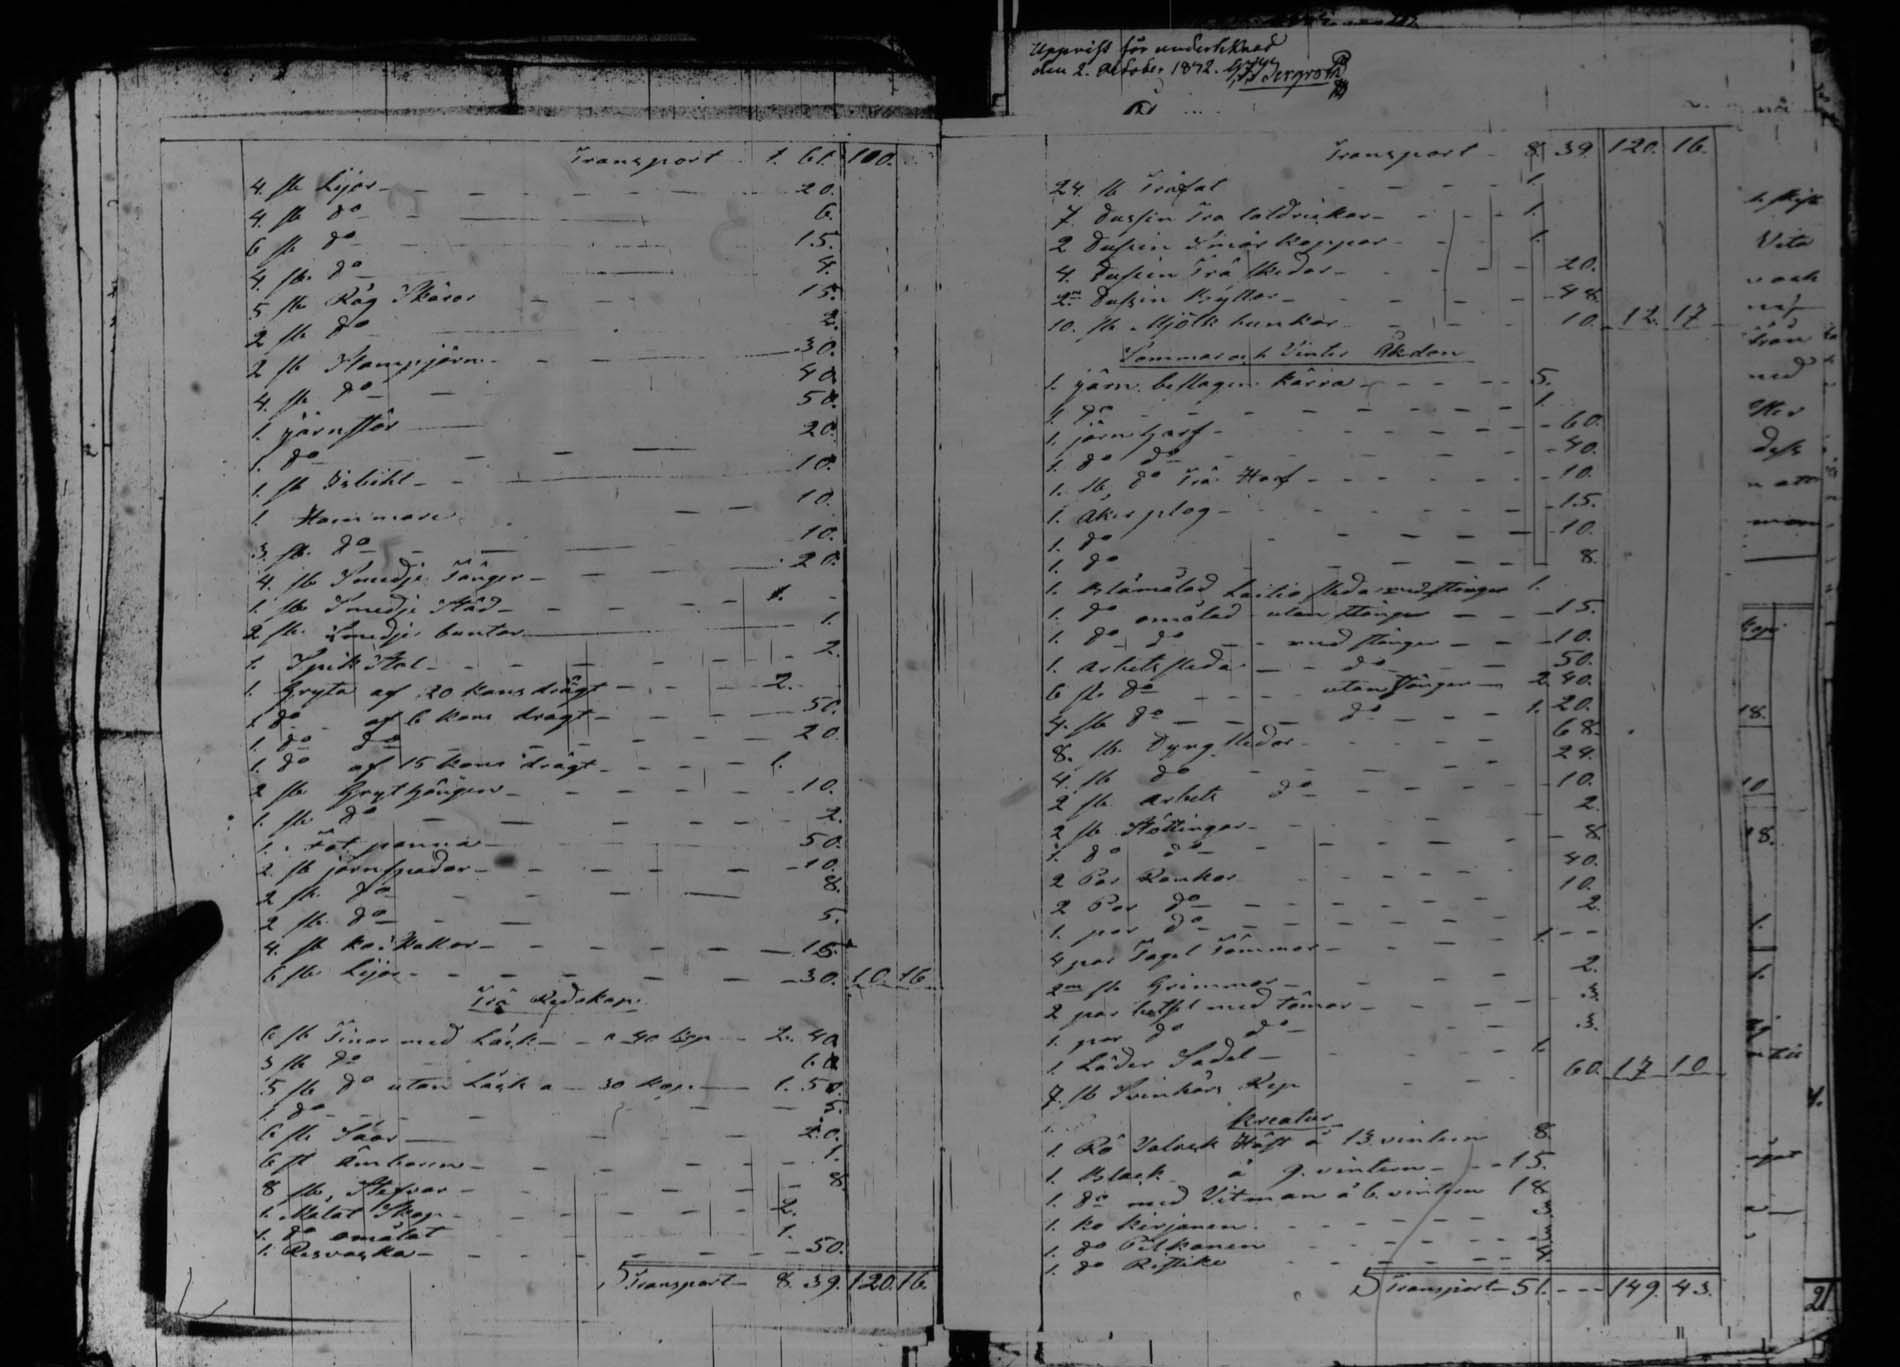 Transport 1. 61. 100.
4. st Lijor 20.
4. st do 6.
6 st do 15.
4. st. do 4.
5 st Råg Skäror 15.
2 st do 2.
2 st Stampjärn 30.
4. st do 40
1. järnstör 50.
1. do 20.
1. st Isbihl 10.
1. Hammare 10.
3. st. do 10.
4. st Smedje Tänger 20.
1. st Smedje Städ 1. -
2 st. Smedje buntar 1.
1. Spik Stal 2.
1. Gryta af 20 kans drägt 2.
1 do af 6 kans dragt 50.
1. do do 20.
1. do af 15 kans drägt 1.
2 st Grythängen 10.
1. st do 2.
1. Fat panna 50.
2 st järnspador 10.
2 st. do 8.
2 st. do 5.
4. st ko Skallor 15
6 st. Lijor 30. 10. 16.
Trä Redskap
6 st Tinor med Låck a 40 kop 2. 40
3 st do 60
5 st do utan Låck a 30 kop. 1. 50.
1. do 5.
6 st Såar 20.
6 st Ämbaren 1.
8 st, Stefvor 8.
1. Målat Skåp 2.
1. do omålat 1.
1. Resvaska 50.
Transport 8. 39. 120. 16.
Uppvist för undertecknad
den 2. October 1872.
Transport 8. 39. 120. 16.
24 st Träfat 1.
7. Dussin Trä taldrickar 1.
2 Dussin Smör koppar 1.
4. Dussin Trä Skedar 20.
2 Dussin Byttor 48.
10. st Mjölk bunkar 10. 12. 17
Sommar och Vinter Åkdon
1. järn beslagen kärra 5.
1. do 1.
1 järn harf 60.
1. do do 40.
1. st, do Trä Harf 10.
1. Åker plog 15.
1. do 10.
1. do 8.
1. Blåmålad Laitio släda med stänger 1.
1. do omålad utan stänger 15.
1. do do med stänger 10.
1. arbets släda do 50.
6 st do utan stänger 2. 40.
4. st do do 1. 20.
8. st. Dyng slädar 68.
4. st do 24.
2 st arbets do 10.
2 st Stöttingar 2.
1. do do 8.
2 Par Rankor 40.
2 Par do 10.
1. par do 2.
4 par Tagel Tömmar 1. - -
2 st Grimmor 2.
2 par betsel med tömar 3.
1. par do do 3.
1 Läder Sadel 1.
7. st Svinhårs Rep 60. 17 10
Kreatur
1. Rö Valack Häst á 13 vintern 8.
1. Black á 9. vintern 15.
1. do med Vitman á 6. vintern 18
1. Ko Kirjanen 3
1. do Pilkanen
1. do Ristike 4.
Transport 51. - - - 149. 43.